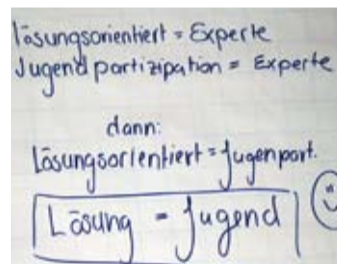 lösungsorientiert = Experte
Jugendpartizipation = Experte
dann:
Lösungsorientiert = Jugenpart.
Lösung = Jugend